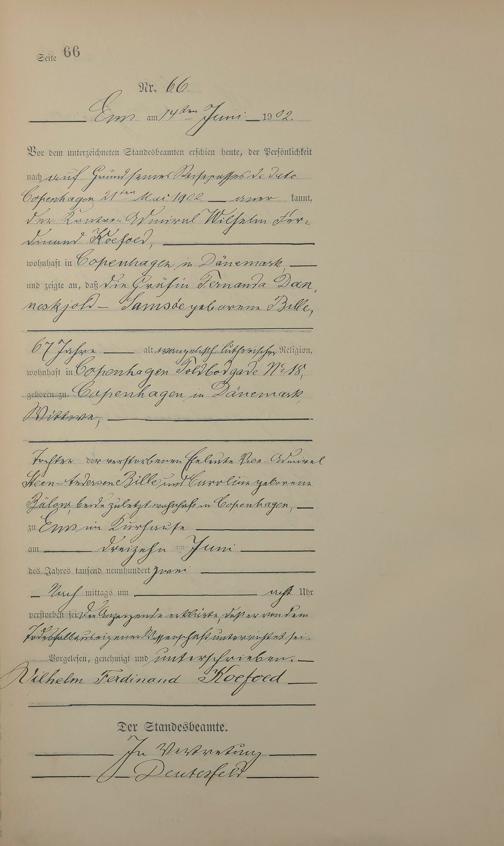 Seite 66
Nr. 66
Ems am 14ten Juni 1902.
Vor dem unterzeichneten Standesbeamten erschien heute, der Persönlichkeit
nach auf Grund seines Reisepasses de dato
Copenhagen 21ten Mai 1902 — aner kannt,
der Kontre-Admiral Wilhelm Fer-
dinand Koefoed,
wohnhaft in Copenhagen in Dänemark,
und zeigte an, daß die Gräfin Fernanda Dan
neskjold - Samsöe geborene Bille,
67 Jahre alt, evangelisch lutherischer Religion,
wohnhaft in Copenhagen Toldbodgade No 18,
geboren zu Copenhagen in Dänemark
Wittwe,
Tochter der verstorbenen Eheleute Vice-Admiral
Steen-Andersen Bille, und Caroline geborene
Bülow, beide zuletzt wohnhaft in Copenhagen,
zu Ems im Kurhause
am dreizehn Juni
des Jahres tausend neunhundert zwei
Nach mittags um acht Uhr
verstorben sei. Der Anzeigende erklärte, daß er von dem
Todesfall aus eigener Wissenschaft unterrichtet sei.
Vorgelesen, genehmigt und unterschrieben.
Wilhelm Ferdinand Koefoed
Der Standesbeamte.
In Vertretung